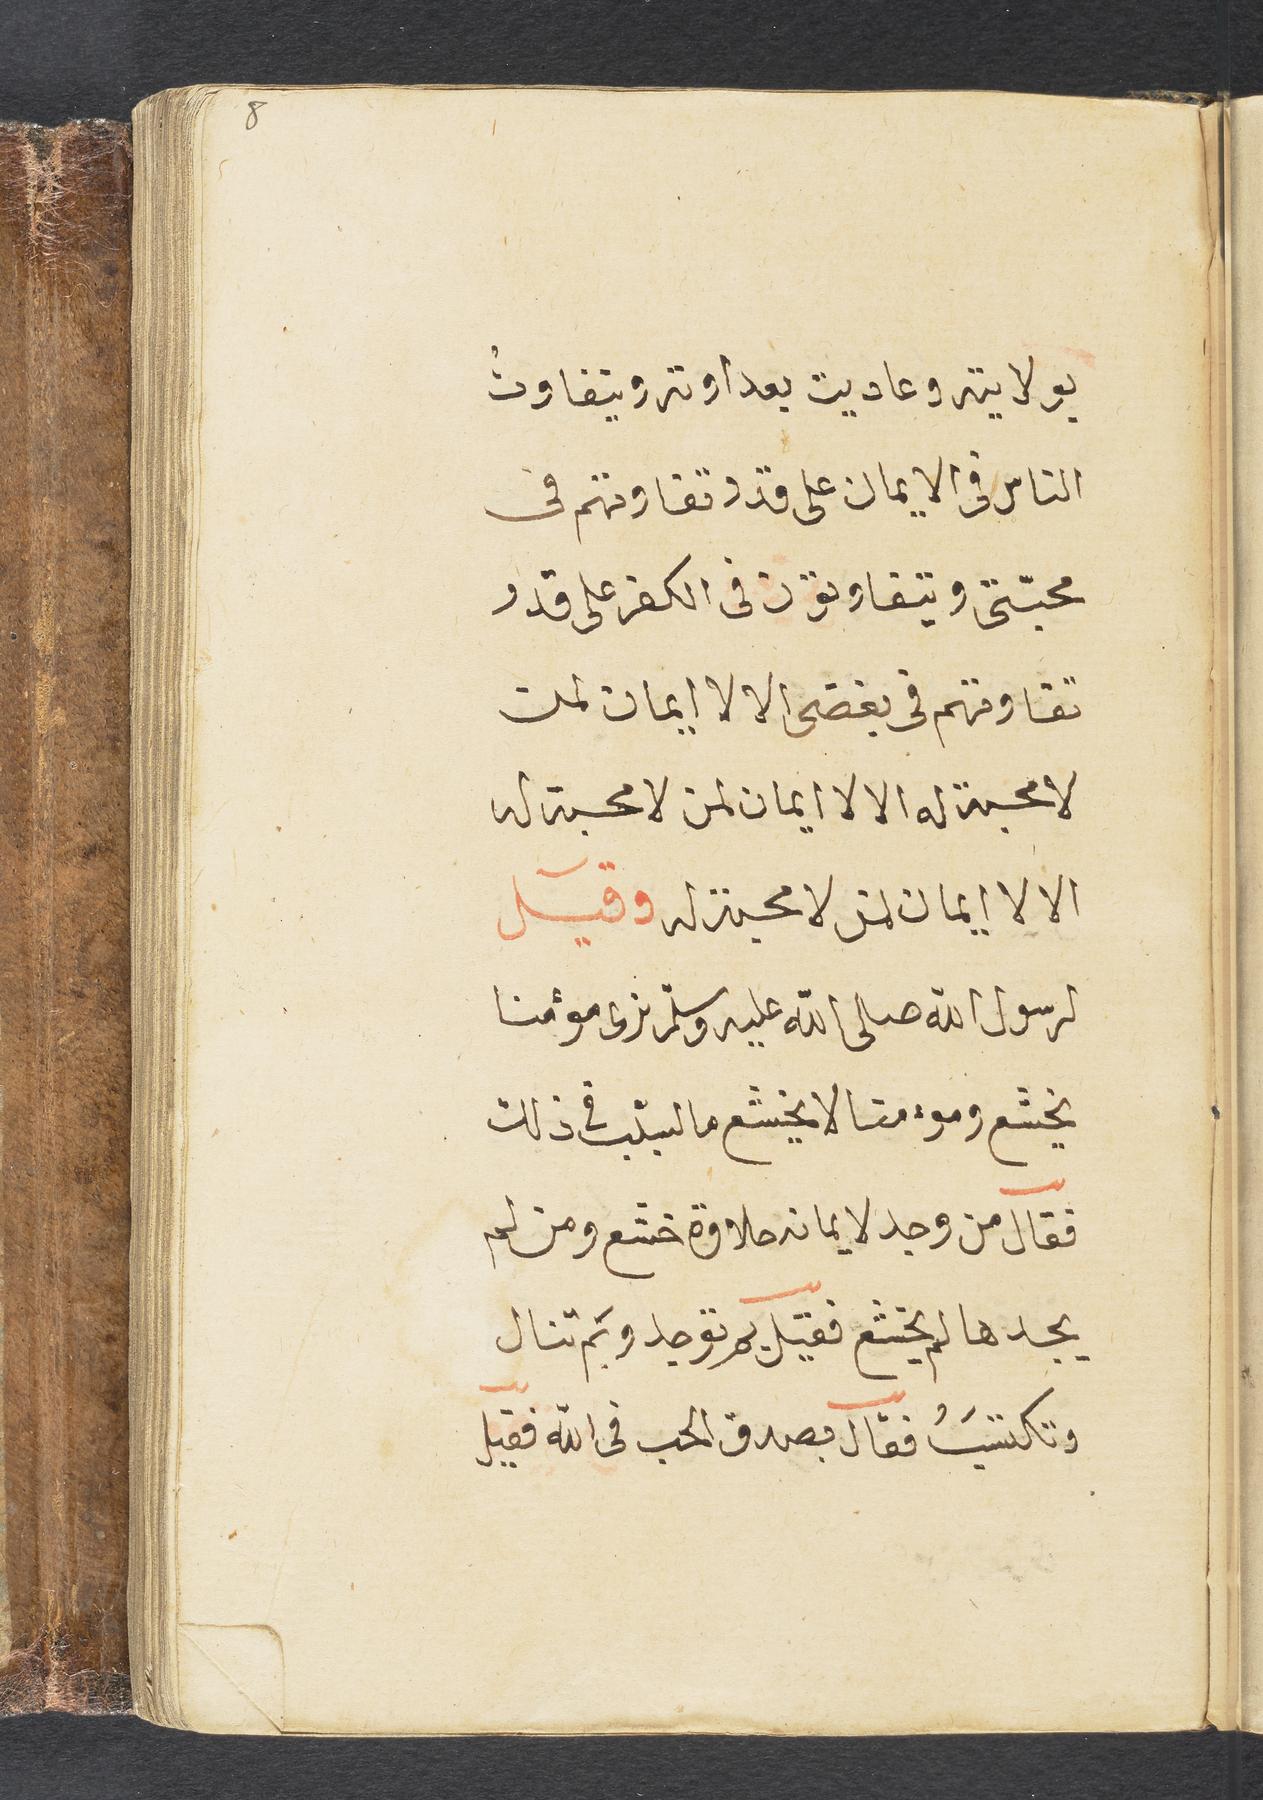 8
بولايته وعاديت بعداوته ويتفاوتُ
الناس فى الايمان على قدر تفاوتهم فى
محبّتى ويتفاوتون فى الكفر على قدر
تفاوتهم فى بغضى الا لا ايمان لمن
لا محبة له الا لا ايمان لمن لا محبة له
الا لا ايمان لمن لا محبة له وقيل
لرسول الله صلى الله عليه وسلم نرى مؤمنا
يخشع ومؤمنا لا يخشع ما السبب فى ذلك
فقال من وجد لايمانه حلاوة خشع ومن لم
يجدها لم يخشع فقيل بم توجد وبم تنال
وتكتسبُ فقال بصدق الحب فى الله فقيل